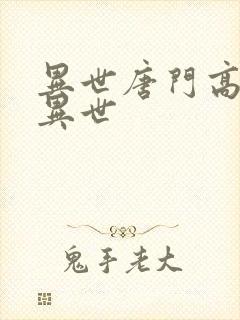 異世唐門高
異世
鬼手老大